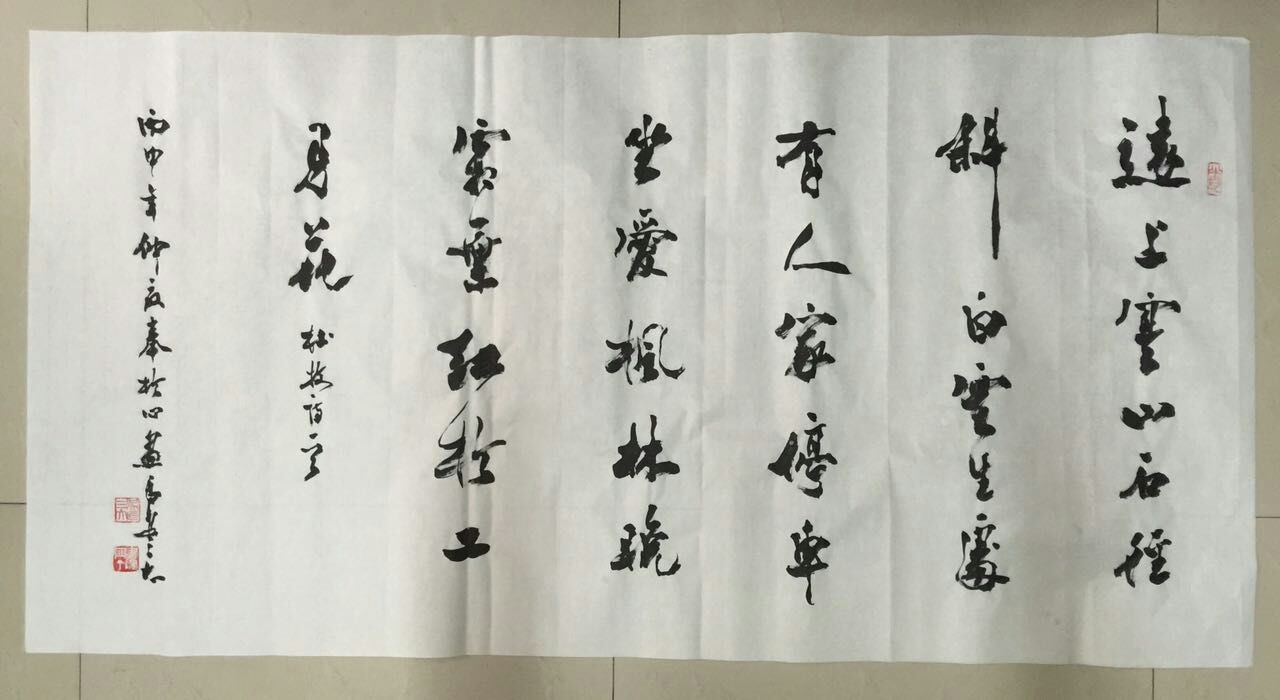 遠上寒山石徑
斜白雲生處
有人家停車
坐愛楓林晚
霜葉紅於二
月花 杜牧詩
丙申年仲夏